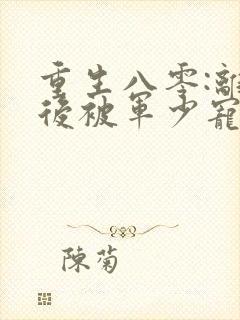 重生八零:離
後被軍少寵
陳菊